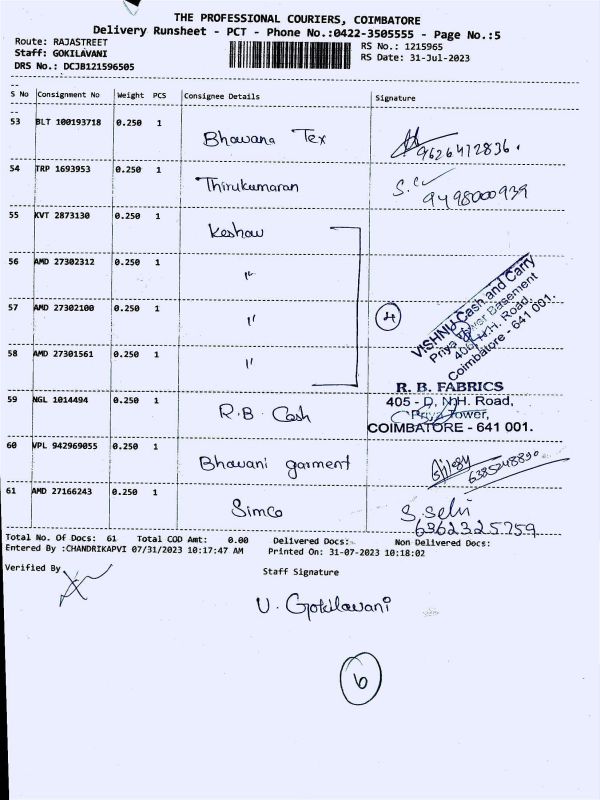 THE PROFESSIONAL COURIERS, COIMBATORE
Delivery Runsheet - PCT - Phone No.:0422-3505555 - Page No.:5
Route: RAJASTREET
Staff: GOKILAVANI
DRS No.: DCJB121596505
RS No.: 1215965
RS Date: 31-Jul-2023
S No Consignment No Weight PCS Consignee Details Signature
53 BLT 100193718 0.250 1 Bhavana Tex 9626412836.
54 TRP 1693953 0.250 1 Thirukumaran 9498000939
55 KVT 2873130 0.250 1 Keshav
56 AMD 27302312 0.250 1 "
57 AMD 27302100 0.250 1 " 4
58 AMD 27301561 0.250 1 "
VISHNU Cash and Carry
Priya Tower Basement
406, N.H. Road,
Coimbatore - 641 001.
59 NGL 1014494 0.250 1 R.B. Cash
R. B. FABRICS
405 - D, N.H. Road,
Priya Tower,
COIMBATORE - 641 001.
60 VPL 942969055 0.250 1 Bhavani garment 6385248890
61 AMD 27166243 0.250 1 Simco S. Selvi
6362325759
Total No. Of Docs: 61 Total COD Amt: 0.00 Delivered Docs: Non Delivered Docs:
Entered By :CHANDRIKAPVI 07/31/2023 10:17:47 AM Printed On: 31-07-2023 10:18:02
Verified By Staff Signature
V. Gokilavani
6